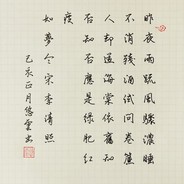 昨夜雨疏風驟濃睡
不消殘酒試問卷簾
人却道海棠依舊知
否知否應是綠肥紅
瘦
如夢令宋李清照
己亥正月悠